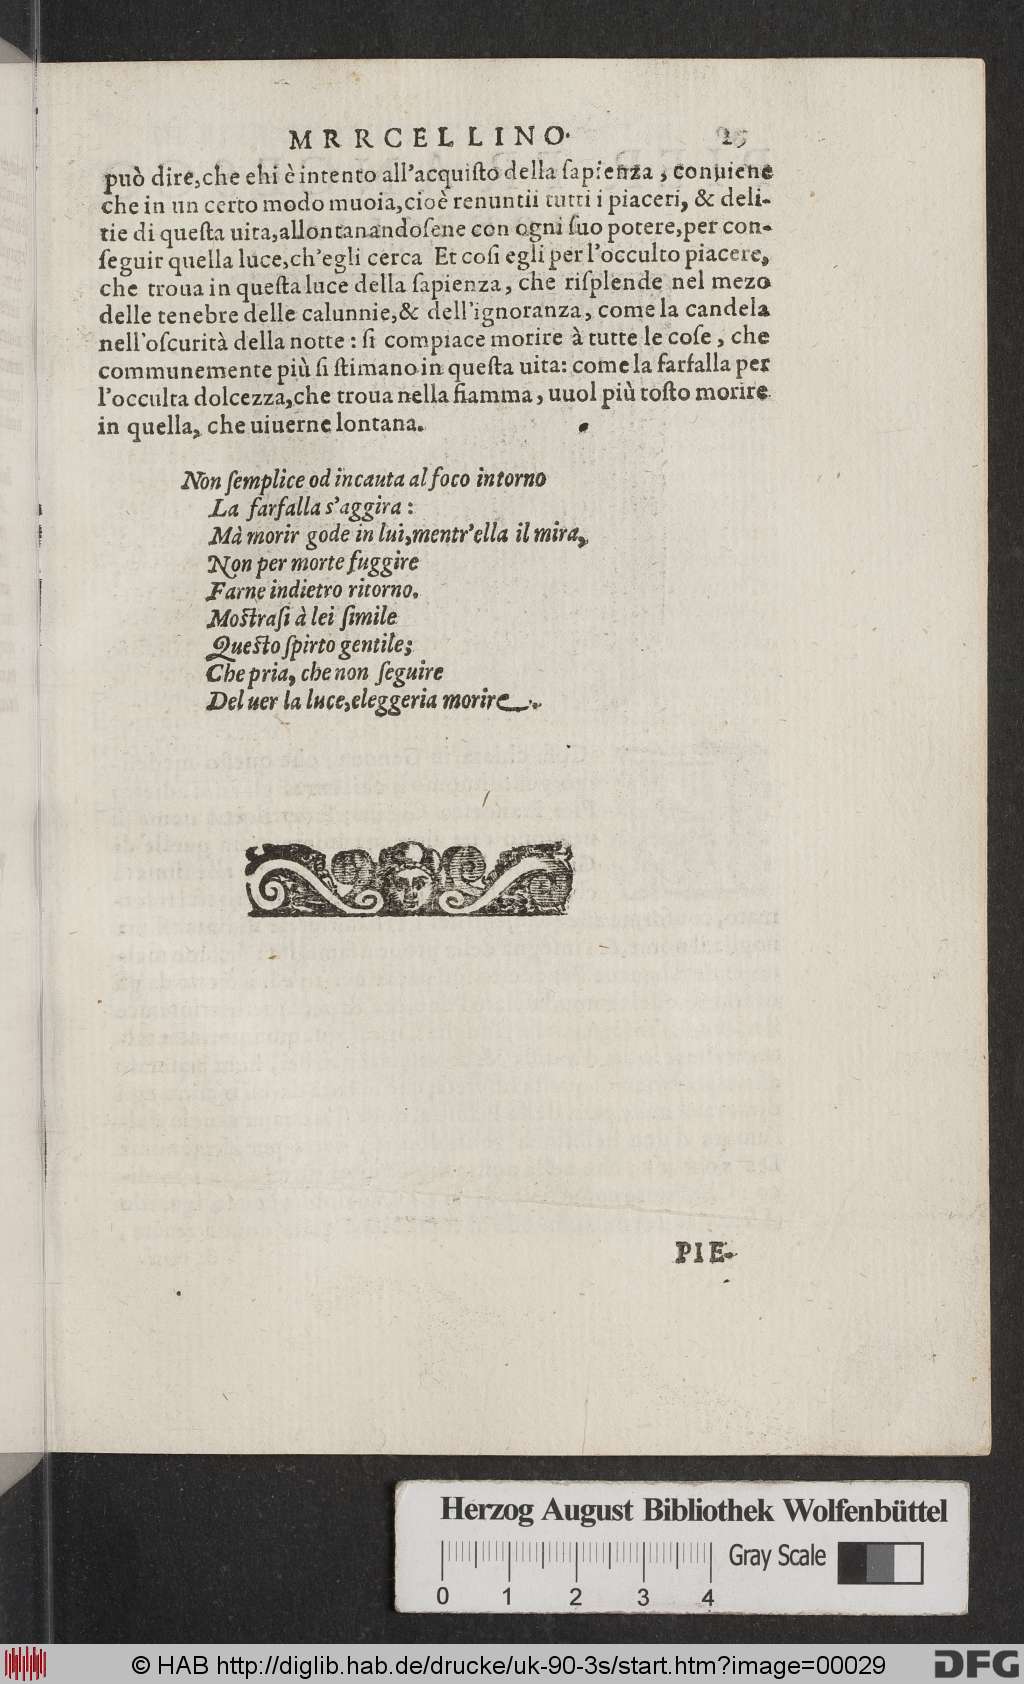 MRRCELLINO. 25
può dire,che ehi è intento all'acquiſto della ſapienza, conuiene
che in un certo modo muoia,cioè renuntii tutti i piaceri, & deli-
tie di queſta uita,allontanandoſene con ogni ſuo potere,per con-
ſeguir quella luce,ch'egli cerca Et coſi egli per l'occulto piacere,
che troua in queſta luce della ſapienza, che riſplende nel mezo
delle tenebre delle calunnie,& dell'ignoranza, come la candela
nell'oſcurità della notte: ſi compiace morire à tutte le coſe, che
communemente più ſi ſtimano in queſta uita: come la farfalla per
l'occulta dolcezza,che troua nella fiamma, uuol più toſto morire
in quella, che uiuerne lontana.
Non ſemplice od incauta al foco intorno
La farfalla s'aggira:
Mà morir gode in lui,mentr'ella il mira,
Non per morte fuggire
Farne indietro ritorno.
Moſtraſi à lei ſimile
Queſto ſpirto gentile;
Che pria, che non ſeguire
Del uer la luce,eleggeria morire.
PIE-
Herzog August Bibliothek Wolfenbüttel
Gray Scale
0 1 2 3 4
© HAB http://diglib.hab.de/drucke/uk-90-3s/start.htm?image=00029
DFG